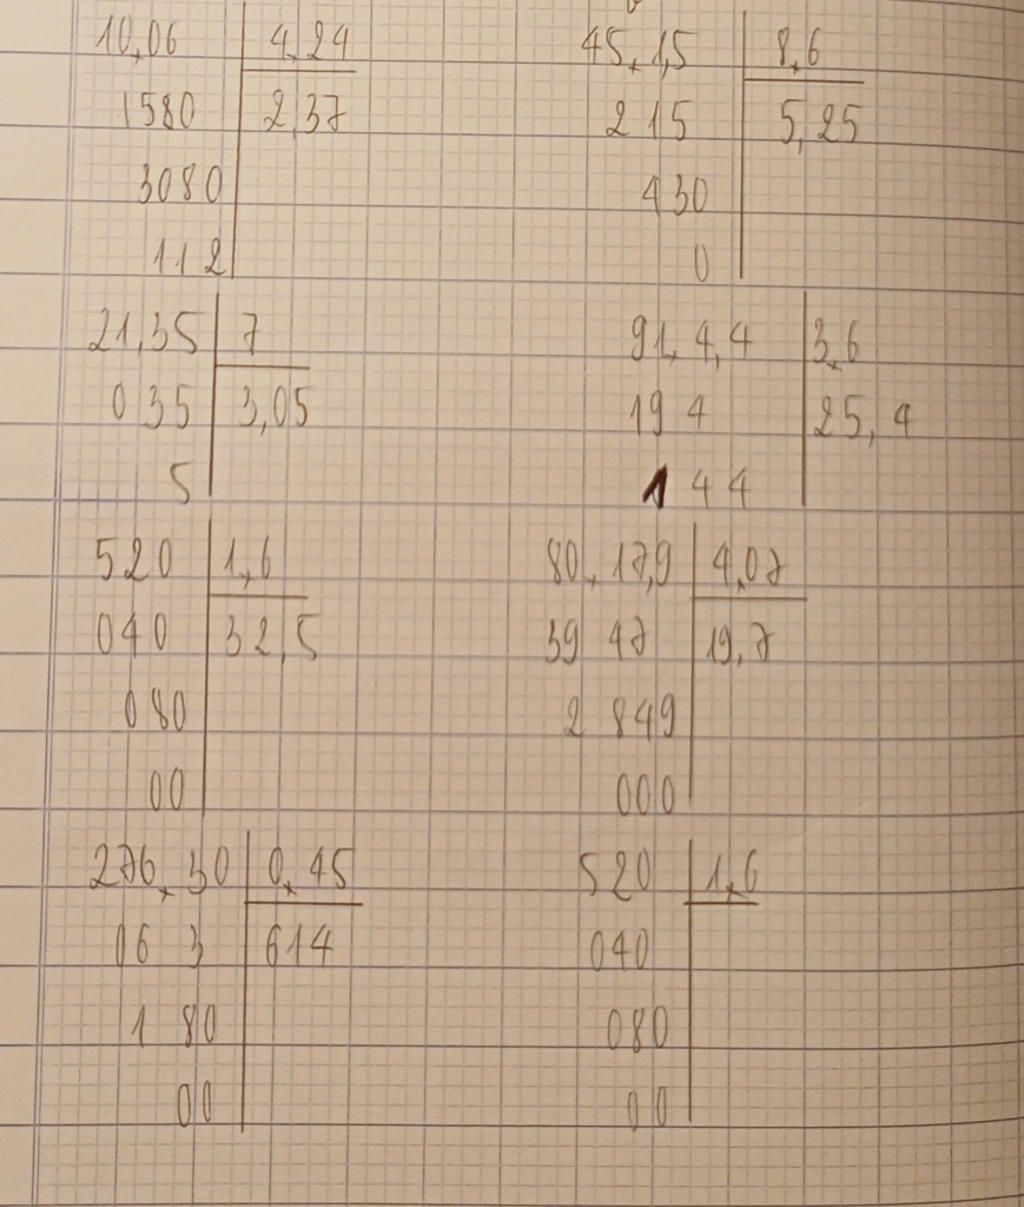 10,06 4,24
1580 2,37
3080
112
45,1,5 8,6
215 5,25
430
0
21,35 7
035 3,05
5
91,4,4 3,6
19 4 25,4
1 44
520 1,6
040 32,5
080
00
80,17,9 4,07
39 47 19,7
2 849
000
276,30 0,45
06 3 614
1 80
00
520 1,6
040
080
00